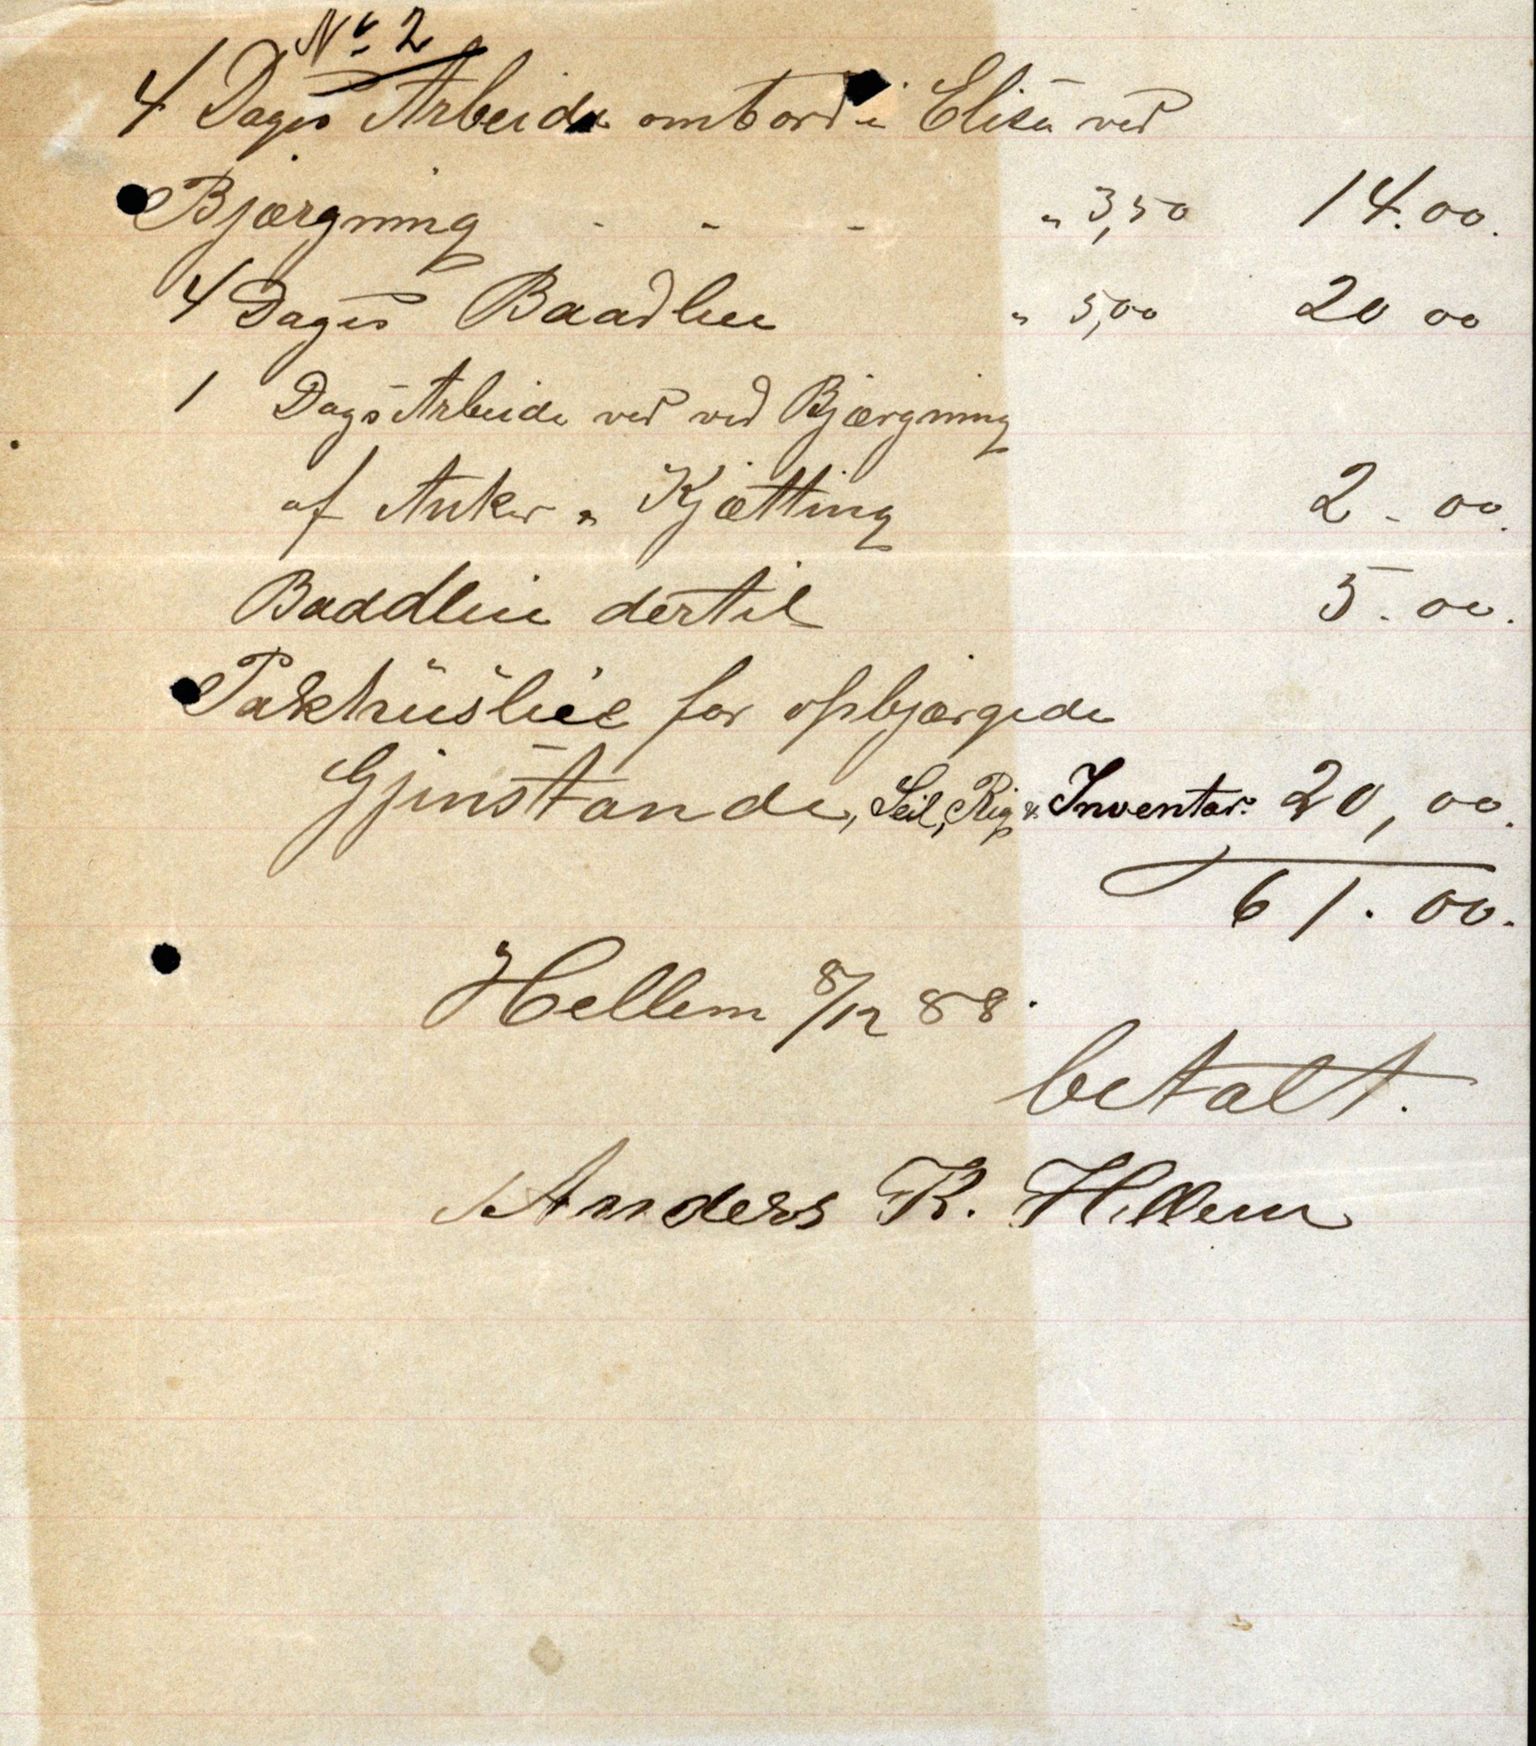 No 2
4 Dages Arbeide ombord i Elise ved
Bjærgning - - - " 3,50 14.00.
4 Dages Baadleie " 5,00 20 00
1 Dags Arbeide ved ved Bjærgning
af Anker " Kjætting 2 - 00.
Baadleie dertil 5 - 00.
Pakhusleie for opbjærgede
Gjenstande, Seil, Rig & Inventar. 20, 00.
61. 00.
Hellem 8/12 88.
betalt.
Anders K. Hellem